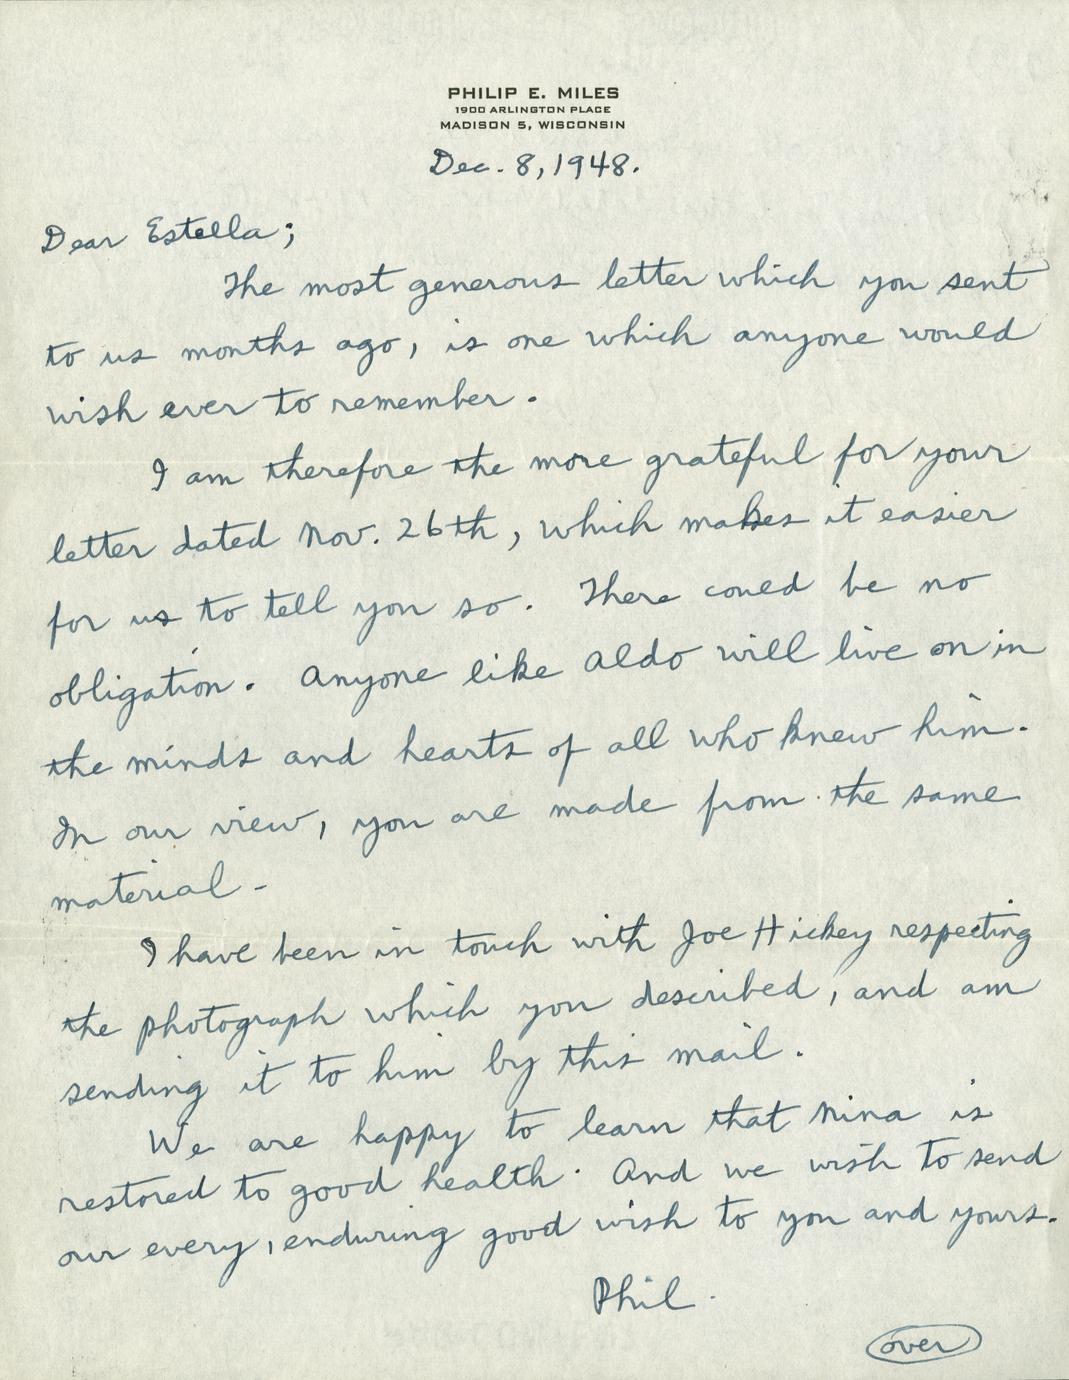 PHILIP E. MILES
1900 ARLINGTON PLACE
MADISON 5, WISCONSIN
Dec. 8, 1948.
Dear Estella;
The most generous letter which you sent
to us months ago, is one which anyone would
wish ever to remember.
I am therefore the more grateful for your
letter dated Nov. 26th, which makes it easier
for us to tell you so. There could be no
obligation. Anyone like Aldo will live on in
the minds and hearts of all who knew him.
In our view, you are made from the same
material -
I have been in touch with Joe Hickey respecting
the photograph which you described, and am
sending it to him by this mail.
We are happy to learn that Nina is
restored to good health. And we wish to send
our every, enduring good wish to you and yours.
Phil.
over